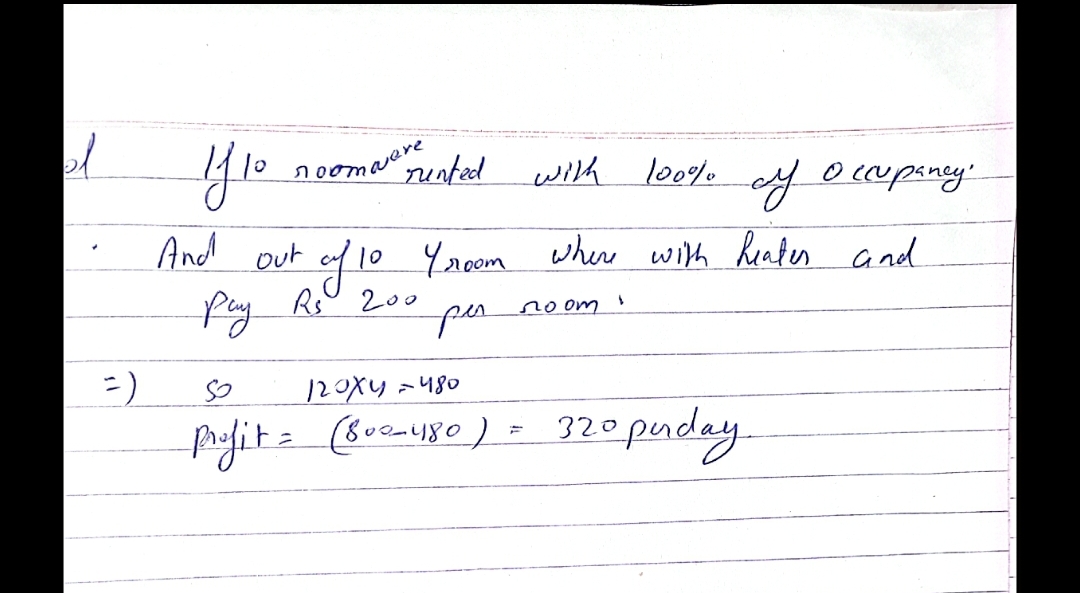 If 10 room were runted with 100% of Occupancy.
And out of 10 4 room where with heater and
pay Rs 200 per room.
=) so 120x4 = 480
Profit = (800-480) = 320 perday.